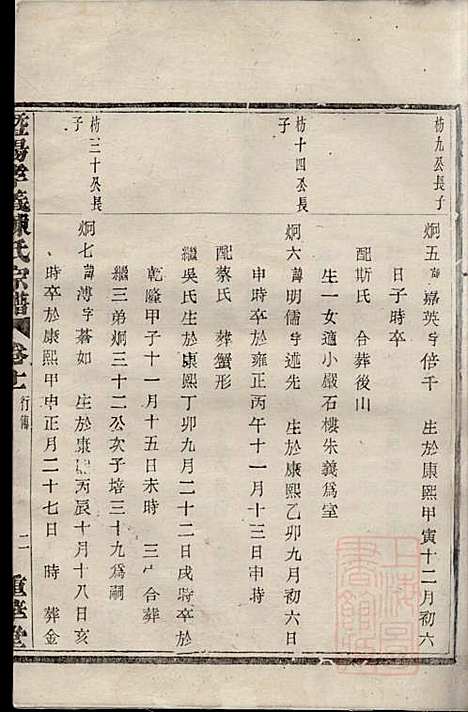 枋九公長子
炯五諱嘉英字倍千　生於康熙甲寅十二月初六
日子時卒
配斯氏　合葬後山
生一女適小嚴石樓朱義爲室
枋十四公長
子
炯六諱明儒字述先　生於康熙乙卯九月初六日
申時卒於雍正丙午十一月十三日申時
配蔡氏　葬蟹形
繼吳氏生於康熙丁卯九月二十二日戌時卒於
乾隆甲子十一月十五日未時　三　合葬
繼三弟炯三十二公次子培三十九爲嗣
枋三十公長
子
炯七諱溥字蒼如　生於康熙丙辰十月十八日亥
時卒於康熙甲申正月二十七日　時　葬金
暨陽孝義陳氏宗譜
卷十一
行傳
二
重華堂
上海
書